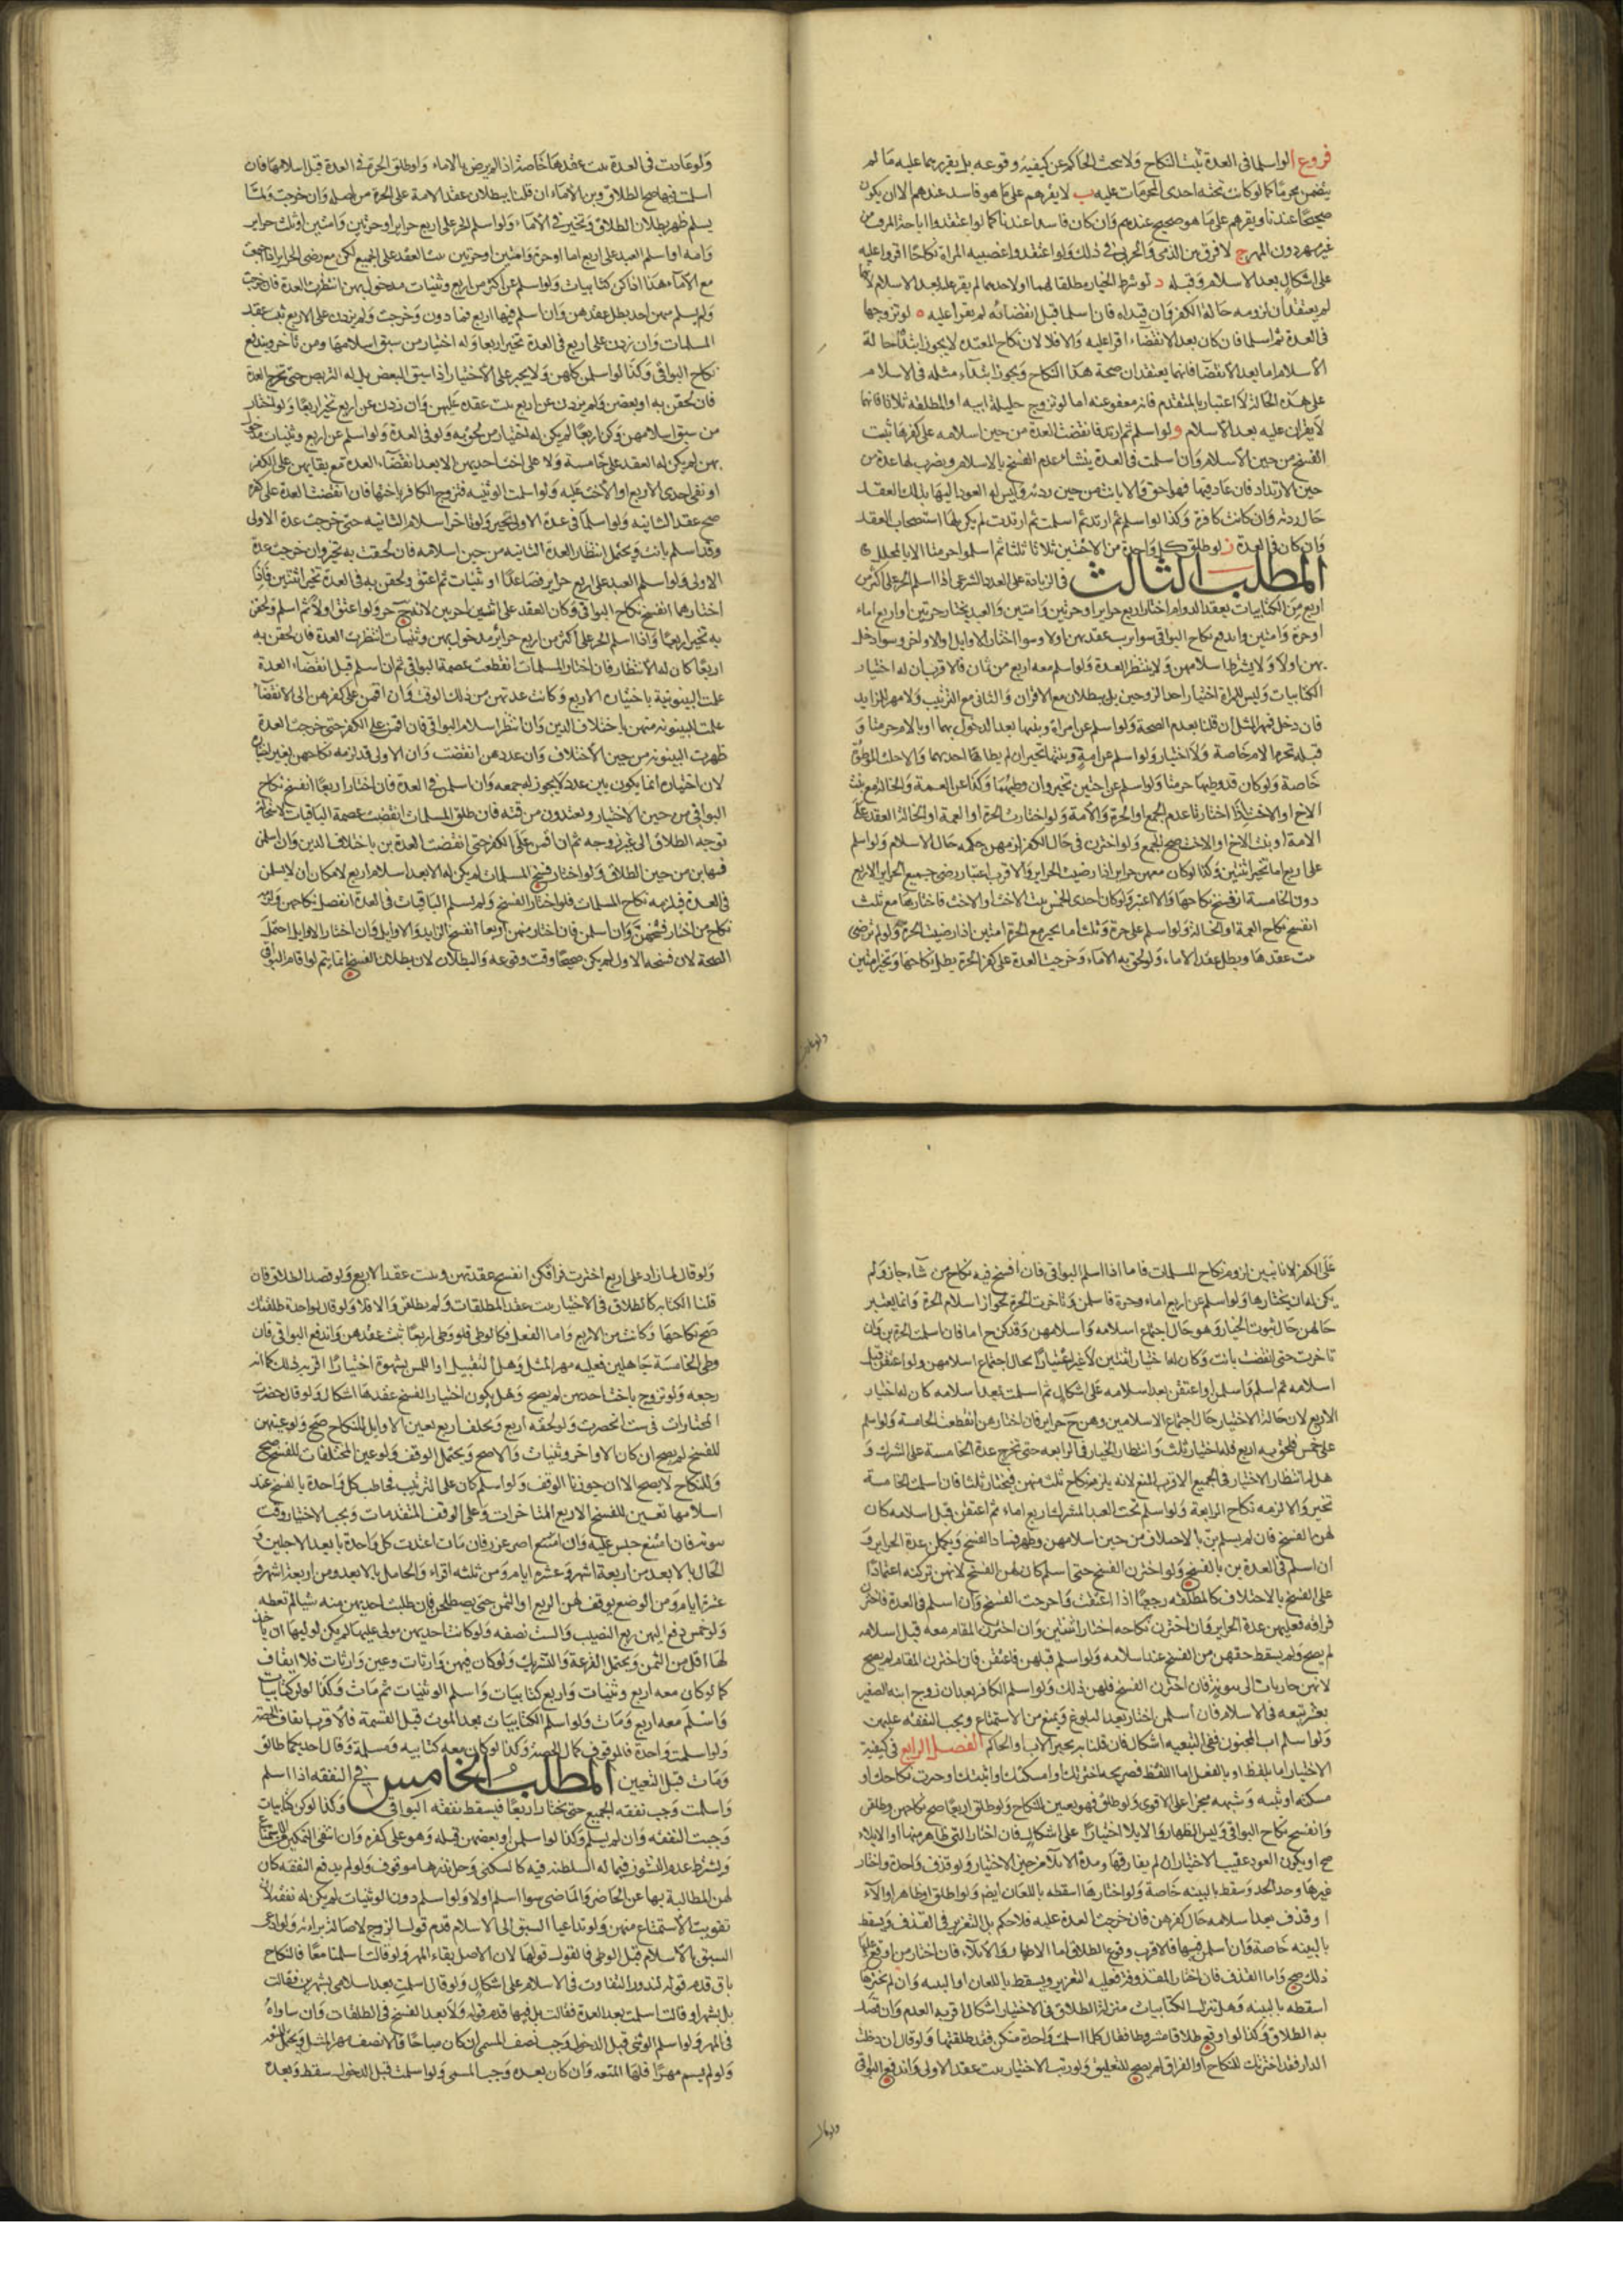 فروع الواسلما فى العدة ثبت النكاح ولا يبحث الحاكم عن كيفية وقوعه بل يقرهما عليه ما لم
يتضمن محرما كما لو كانت تحته احدى المحرمات عليه ب لا يقرهم على ما هو فاسد عندهم الا ان يكون
صحيحا عندنا ويقرهم على ما هو صحيح عندهم وان كان فاسدا عندنا كما لو اعتقدوا اباحة الموقت من
غير مهر دون المهر ج لا فرق بين الذمى والحربى فى ذلك ولو اعتقدوا غصبيه المراة نكاحا اقروا عليه
على اشكال بعد الاسلام وقبله د لو شرط الخيار مطلقا لهما او لاحدهما لم يقر عليه بعد الاسلام لانهما
لم يعتقدا لزومه حالة الكفر وان قيداه فان اسلما قبل انقضائه لم يقرا عليه ه لو تزوجها
فى العدة ثم اسلما فان كان بعد الانقضاء اقرا عليه والا فلا لان نكاح المعتده لا يجوز ابتداء حالة
الاسلام اما بعد الانقضا فانهما يعتقدان صحة هذا النكاح ويجوز ابتداء مثله فى الاسلام
على هذه الحالة لا اعتبار بالمتقدم فانه معفو عنه اما لو تزوج حليلة ابيه او المطلقه ثلاثا فانهما
لا يقران عليه بعد الاسلام و لو اسلم ثم ارتد فانقضت العدة من حين اسلامه على كفرها ثبت
الفسخ من حين الاسلام وان اسلمت فى العدة عدم الفسخ بالاسلام ويضرب لها عدة من
حين الارتداد فان عاد فيها فهو احق والا بانت من حين ردته وليس له العود اليها بذلك العقد
حال ردته وان كانت كافرة وكذا لو اسلم ثم ارتد ثم اسلمت ثم ارتدت لم يكن لهما استصحاب العقد
وان كان فى العدة ز لو طلق كل واحدة من الاختين ثلاثا ثلثا ثم اسلموا حرمتا الا بالمحلل
المطلب الثالث فى الزيادة على العدد الشرعى اذا اسلم الحر على اكثر من
اربع من الكتابيات بعقد الدوام اختار اربع حراير او حرتين وامتين والعبد يختار حرتين او اربع اماء
او حرة وامتين واندفع نكاح البواقى سوا رتب عقدهن اولا وسوا اختار الاوايل والاواخر وسوا دخل
بهن اولا ولا يشترط اسلامهن ولا ينتظر العدة ولو اسلم معه اربع من ثمان فالاقرب ان له اختيار
الكتابيات وليس للمراة اختيار احد الزوجين بل يبطلان مع الاقتران والثانى مع الترتيب ولا مهر للزايد
فان دخل فمهر المثل ان قلنا بعدم الصحة ولو اسلم عن امراة وبنتها بعد الدخول بهما او بالام حرمتا و
قبله تحرم الام خاصة ولا اختيار ولو اسلم عن امة وبنتها تخير ان لم يطا احديهما والا حلت الموطؤة
خاصة ولو كان قد وطيهما حرمتا ولو اسلم عن اختين تخير وان وطيهما وكذا عن العمة والخالة مع بنت
الاخ او الاخت اذا اختارتا عدم الجمع او الحرة والامة ولو اختارت الحرة او العمة او الخالة العقد على
الامة او بنت الاخ او الاخت صح الجمع ولو اخترن فى حال الكفر لزمهن حكمه حال الاسلام ولو اسلم
على اربع اما تخير اثنتين وكذا لو كان معهن حراير اذا رضيت الحراير والاقرب اعتبار رضى جميع الحراير الاربع
دون الخامسة ان فسخ نكاحها والا اعتبر ولو كان احدى الخمس بنت الاخت او الاخ فاختارها مع ثلث
انفسخ نكاح العمة او الخالة ولو اسلم على حرة وثلث اما تخير مع الحرة امتين اذا رضيت الحرة ولو لم ترضى
ثبت عقدها وبطل عقد الاماء ولو لحق به الاماء وخرجت العدة على كفر الحرة بطل نكاحها وتخير امتين
ولو عادت
ولو عادت فى العدة ثبت عقدها خاصة اذا لم يرض بالاماء ولو طلق الحرة فى العدة قبل اسلامها فان
اسلمت فيها صح الطلاق وبن الاماء ان قلنا ببطلان عقد الامة على الحرة من اصله وان خرجت ولما
يسلم ظهر بطلان الطلاق وتخير فى الاماء ولو اسلم الحر على اربع حراير او حرتين وامتين او ثلث حراير
وامه او اسلم العبد على اربع اما او حرة وامتين او حرتين ثبت العقد على الجميع لكن مع رضى الحراير
مع الاماء هذا اذا كن كتابيات ولو اسلم عن اكثر من اربع وثنيات مدخول بهن انتظرت العدة فان خرجت
ولم يسلم منهن احد بطل عقدهن وان اسلم فيها اربع فما دون وخرجت ولم يزدن على الاربع ثبت عقد
المسلمات وان زدن على اربع فى العدة تخير اربعا وله اختيار من سبق اسلامها ومن تاخر ويندفع
نكاح البواقى وكذا لو اسلمن كلهن ولا يجبر على الاختيار اذا سبق البعض بل له التربص حتى تخرج العدة
فان لحقن به او بعضهن ولم يزدن عن اربع ثبت عقده عليهن وان زدن عن اربع تخير اربعا ولو اختار
من سبق اسلامهن وكن اربعا لم يكن له اختيار من لحق به ولو فى العدة ولو اسلم عن اربع وثنيات مدخول
بهن لم يكن له العقد على خامسة ولا على اخت احديهن الا بعد انقضاء العدة مع بقايهن على الكفر
او نقص احدى الاربع او الاخت عليه ولو اسلمت الوثنيه فتزوج الكافر باختها فان انقضت العدة على كفره
صح عقد الثانيه ولو اسلما فى عدة الاولى تخير ولو تاخر اسلام الثانيه حتى خرجت عدة الاولى
وقد اسلم بانت ويحتمل انتظار العدة الثانيه من حين اسلامه فان لحقت به تخير وان خرجت عدة
الاولى ولو اسلم العبد على اربع حراير فصاعدا او ثنيات ثم اعتق ولحقن به فى العدة تخير اثنتين فاذا
اختارهما انفسخ نكاح البواقى وكان العقد على اثنتين اخريين لانه ح حر ولو اعتق اولا ثم اسلم ولحقن
به تخير اربعا واذا اسلم الحر على اكثر من اربع حراير مدخول بهن وثنيات انتظرت العدة فان لحقن به
اربعا كان له الانتظار فان اختار المسلمات انقطعت عصمة البواقى ثم ان اسلم قبل انقضاء العدة
علمت البينونة باختيار الاربع وكانت عدتهن من ذلك الوقت وان اقمن على كفرهن الى الانقضا
علمت البينونه منهن باختلاف الدين وان انتظر اسلام البواقى فان اقمن على الكفر حتى خرجت العدة
ظهرت البينونه من حين الاختلاف وان عددهن انقضت وان الاولى قد لزمه نكاحهن بغير اختياره
لان اختياره انما يكون بين عدد لا يجوز له جمعه وان اسلمن فى العدة فان اختار اربعا انفسخ نكاح
البواقى من حين الاختيار ويعتددن من فان طلق المسلمات انقضت عصمة الباقيات لاستحالة
توجه الطلاق الى غير زوجه ثم ان اقمن على الكفر حتى انقضت العدة بن باختلاف الدين وان اسلمن
فيها بن من حين الطلاق ولو اختار فسخ المسلمات لم يكن له الا بعد اسلام اربع لامكان ان لا يسلمن
فى العدة فيلزمه نكاح المسلمات فلو اختار الفسخ ولم يسلم الباقيات فى العدة انفصل نكاحهن ولزمه
نكاح من اختار فسخهن وان اسلمن فان اختار منهن اربعا انفسخ الزايد والاوايل وان اختار الاوايل احتمل
الصحة لان فسخه الاول لم يكن صحيحا وقت وقوعه والبطلان لان بطلان الفسخ انما يتم لو اقام البواقى
على الكفر لانا نتبين لزوم نكاح المسلمات فاما اذا اسلم البواقى فان فسخ فيه نكاح من شاء جاز ولم
يكن له ان يختارها ولو اسلم عن اربع اماء وحرة فاسلمن وتاخرت الحرة لجواز اسلام الحرة وانما يعتبر
حالهن حال ثبوت الخيار وهو حال اجتماع اسلامه واسلامهن وقد كن ح اما فان اسلمت الحرة بن وان
تاخرت حتى انقضت بانت وكان له اختيار اثنتين لا غير اعتبارا بحال اجتماع اسلامهن ولو اعتقن قبل
اسلامه ثم اسلم واسلمن او اعتقن بعد اسلامه على اشكال ثم اسلمت بعد اسلامه كان له اختيار
الاربع لان حالة الاختيار حال اجتماع الاسلامين وهن ح حراير فان اختارهن انقطعت الخامسة ولو اسلم
على خمس فلحق به اربع فله اختيار ثلث وانتظار الخيار فى الرابعه حتى تخرج عدة الخامسة على الشرك و
هل له انتظار الاختيار فى الجميع الاقرب المنع لانه يلزمه نكاح ثلث منهن فيختار ثلثا فان اسلمت الخامسة
تخير والا لزمه نكاح الرابعة ولو اسلم تحت العبد المشرك اربع اماء ثم اعتقن قبل اسلامه كان
لهن الفسخ فان لم يسلم بن بالاختلاف من حين اسلامهن وظهر فساد الفسخ ويكملن عدة الحراير و
ان اسلم فى العدة بن بالفسخ ولو اخترن الفسخ حتى اسلم كان لهن الفسخ لانهن تركنه اعتمادا
على الفسخ بالاختلاف كالمطلقه رجعيا اذا اعتقت واخرت الفسخ وان اسلم فى العدة فاخترن
فراقه فعليهن عدة الحراير وان اخترن نكاحه اختار اثنتين وان اخترن المقام معه قبل اسلامه
لم يصح ولم يسقط حقهن من الفسخ عند اسلامه ولو اسلم قبلهن فاعتقن فان اخترن المقام لم يصح
لانهن جاريات الى بينونة فان اخترن الفسخ فلهن ذلك ولو اسلم الكافر بعد ان زوج ابنه الصغير
بعشر تبعه فى الاسلام فان اسلمن اختار بعد البلوغ ويمنع من الاستمتاع ويجب النفقه عليهن
ولو اسلم اب المجنون ففى التبعيه اشكال فان قلنا به تخير الاب او الحاكم الفصل الرابع فى كيفية
الاختيار اما بلفظ او بالفعل اما اللفظ فصريحه اخترتك وامسكتك واثبتك واخترت نكاحك او
مسكته او ثبته وشبهه منجزا على الاقوى ولو طلق فهو تعيين للنكاح ولو طلق اربعا صح نكاحهن وطلقن
وانفسخ نكاح البواقى وليس الظهار والايلا اختيارا على اشكال فان اختار التى ظاهر منها او الايلاء
صح ويكون العود عقيب الاختيار ان لم يفارقها ومدة الايلاء من حين الاختيار ولو قذف واحدة واختار
غيرها وحد الحد وسقط بالبينه خاصة ولو اختارها اسقطه باللعان ايضا ولو اطلق او ظاهر او الاء
او قذف بعد اسلامه حال كفرهن فان خرجت العدة عليه فلا حكم بل التعزير فى القذف ويسقط
بالبينه خاصة وان اسلمن فيها فالاقرب وقوع الطلاق اما الاظهار والايلاء فان اختار من اوقع عليها
ذلك صح واما القذف فان اختار المقذوفة فعليه التعزير ويسقط باللعان او البينه وان لم يخترها
اسقطه بالبينه وهل تنزل الكنايات منزلة الطلاق فى الاختيار اشكال اقربه العدم وان قصد
به الطلاق وكذا لو اوقع طلاقا مشروطا فقال كلما اسلمت واحدة منكن فقد طلقتها ولو قال ان دخلت
الدار فقد اخترتك للنكاح او الفراق لم يصح للتعليق ولو رتب الاختيار ثبت عقد الاولى واندفع البواقى
ولو قال
ولو قال لما زاد على اربع اخترت فراقكن انفسخ عقدتهن وثبت عقد الاربع ولو قصد الطلاق فان
قلنا الكنايه كالطلاق فى الاختيار ثبت عقد المطلقات ولم يطلقن والا فلا ولو قال لواحدة طلقتك
صح نكاحها وكانت من الاربع واما الفعل فكالوطى فلو وطى اربعا ثبت عقدهن واندفع البواقى فان
وطى الخامسة جاهلين فعليه مهر المثل وهل التقبيل او اللمس بشهوة اختيارا اقربه ذلك كما انه
رجعه ولو تزوج باخت احديهن لم يصح وهل يكون اختيار الفسخ عقدها اشكال ولو قال حصرت
المختارات فى ست انحصرت ولو لحقه اربع وتخلف اربع تعين الاوايل للنكاح صح ولو عينهن
للفسخ لم يصح ان كان الاواخر وثنيات والا صح ويحتمل الوقف ولو عين المختلفات للفسخ صح
وللنكاح لا يصح الا ان جوزنا الوقف ولو اسلم كان على الترتيب فخاطب كل واحدة بالفسخ عند
اسلامها تعين للفسخ الاربع المتاخرات وعلى الوقف المتقدمات ويجب الاختيار وقت
ثبوته فان امتنع حبس عليه وان امتنع اصر عزر فان مات اعتدت كل واحدة بابعد الاجلين ف
الحايل بالابعد من اربعة اشهر وعشرة ايام ومن ثلثه اقراء والحامل بالابعد ومن اربعة اشهر و
عشرة ايام ومن الوضع يوقف لهن الربع او الثمن حتى يصطلحن فان طلبت احديهن منه شيا لم تعطه
ولو خمس دفع اليهن ربع النصيب والست نصفه ولو كانت احديهن مولى عليها لم يكن لوليها ان ياخذ
لها اقل من الثمن ويحتمل القرعة والتشريك ولو كان فيهن وارثات وغير وارثات فلا ايقاف
كما لو كان معه اربع وثنيات واربع كتابيات واسلم الوثنيات ثم مات وكذا لو كن كتابيات
واسلم معه اربع ومات ولو اسلم الكتابيات بعد الموت قبل القسمة فالاقرب ايقاف الحصة
ولو اسلمت واحدة فالموقوف كمال الحصة وكذا لو كان معه كتابيه ومسلمة وقال احديكما طالق
ومات قبل التعيين المطلب الخامس فى النفقه اذا اسلم
واسلمت وجب نفقه الجميع حتى يختار اربعا فيسقط نفقه البواقى وكذا لو كن كتابيات
وجبت النفقه وان لم يسلم وكذا لو اسلمن او بعضهن قبله وهو على كفره وان انتفى التمكين من الاستمتاع
ويشترط عدم النشوز فيما له السلطنه فيه كالسكنى وحل نذرها موقوف ولو لم يدفع النفقه كان
لهن المطالبة بها عن الحاضر والماضى سوا اسلم اولا ولو اسلم دون الوثنيات لم يكن له نفقه لان
تفويت الاستمتاع منهن ولو تداعيا السبق الى الاسلام قدم قول الزوج لاصالة براءته ولو ادعى
السبق بالاسلام قبل الوطى فالقول قولها لان الاصل بقاء المهر ولو قالت اسلمنا معا فالنكاح
باق قدم قوله لندور التفاوت فى الاسلام على اشكال ولو قال اسلمت بعد اسلامى بشهرين فقالت
بل بشهر او قالت اسلمت بعد العدة فقالت بل فيها قدم قوله ولا بعد الفسخ فى الطلقات وان ساواه
فى المهر ولو اسلم الوثنى قبل الدخول وجب نصف المسمى ان كان مباحا والا نصف مهر المثل ويحتمل المتعه
ولو لم يسم مهرا فلها المتعه وان كان بعده وجب المسمى ولو اسلمت قبل الدخول سقط وبعده